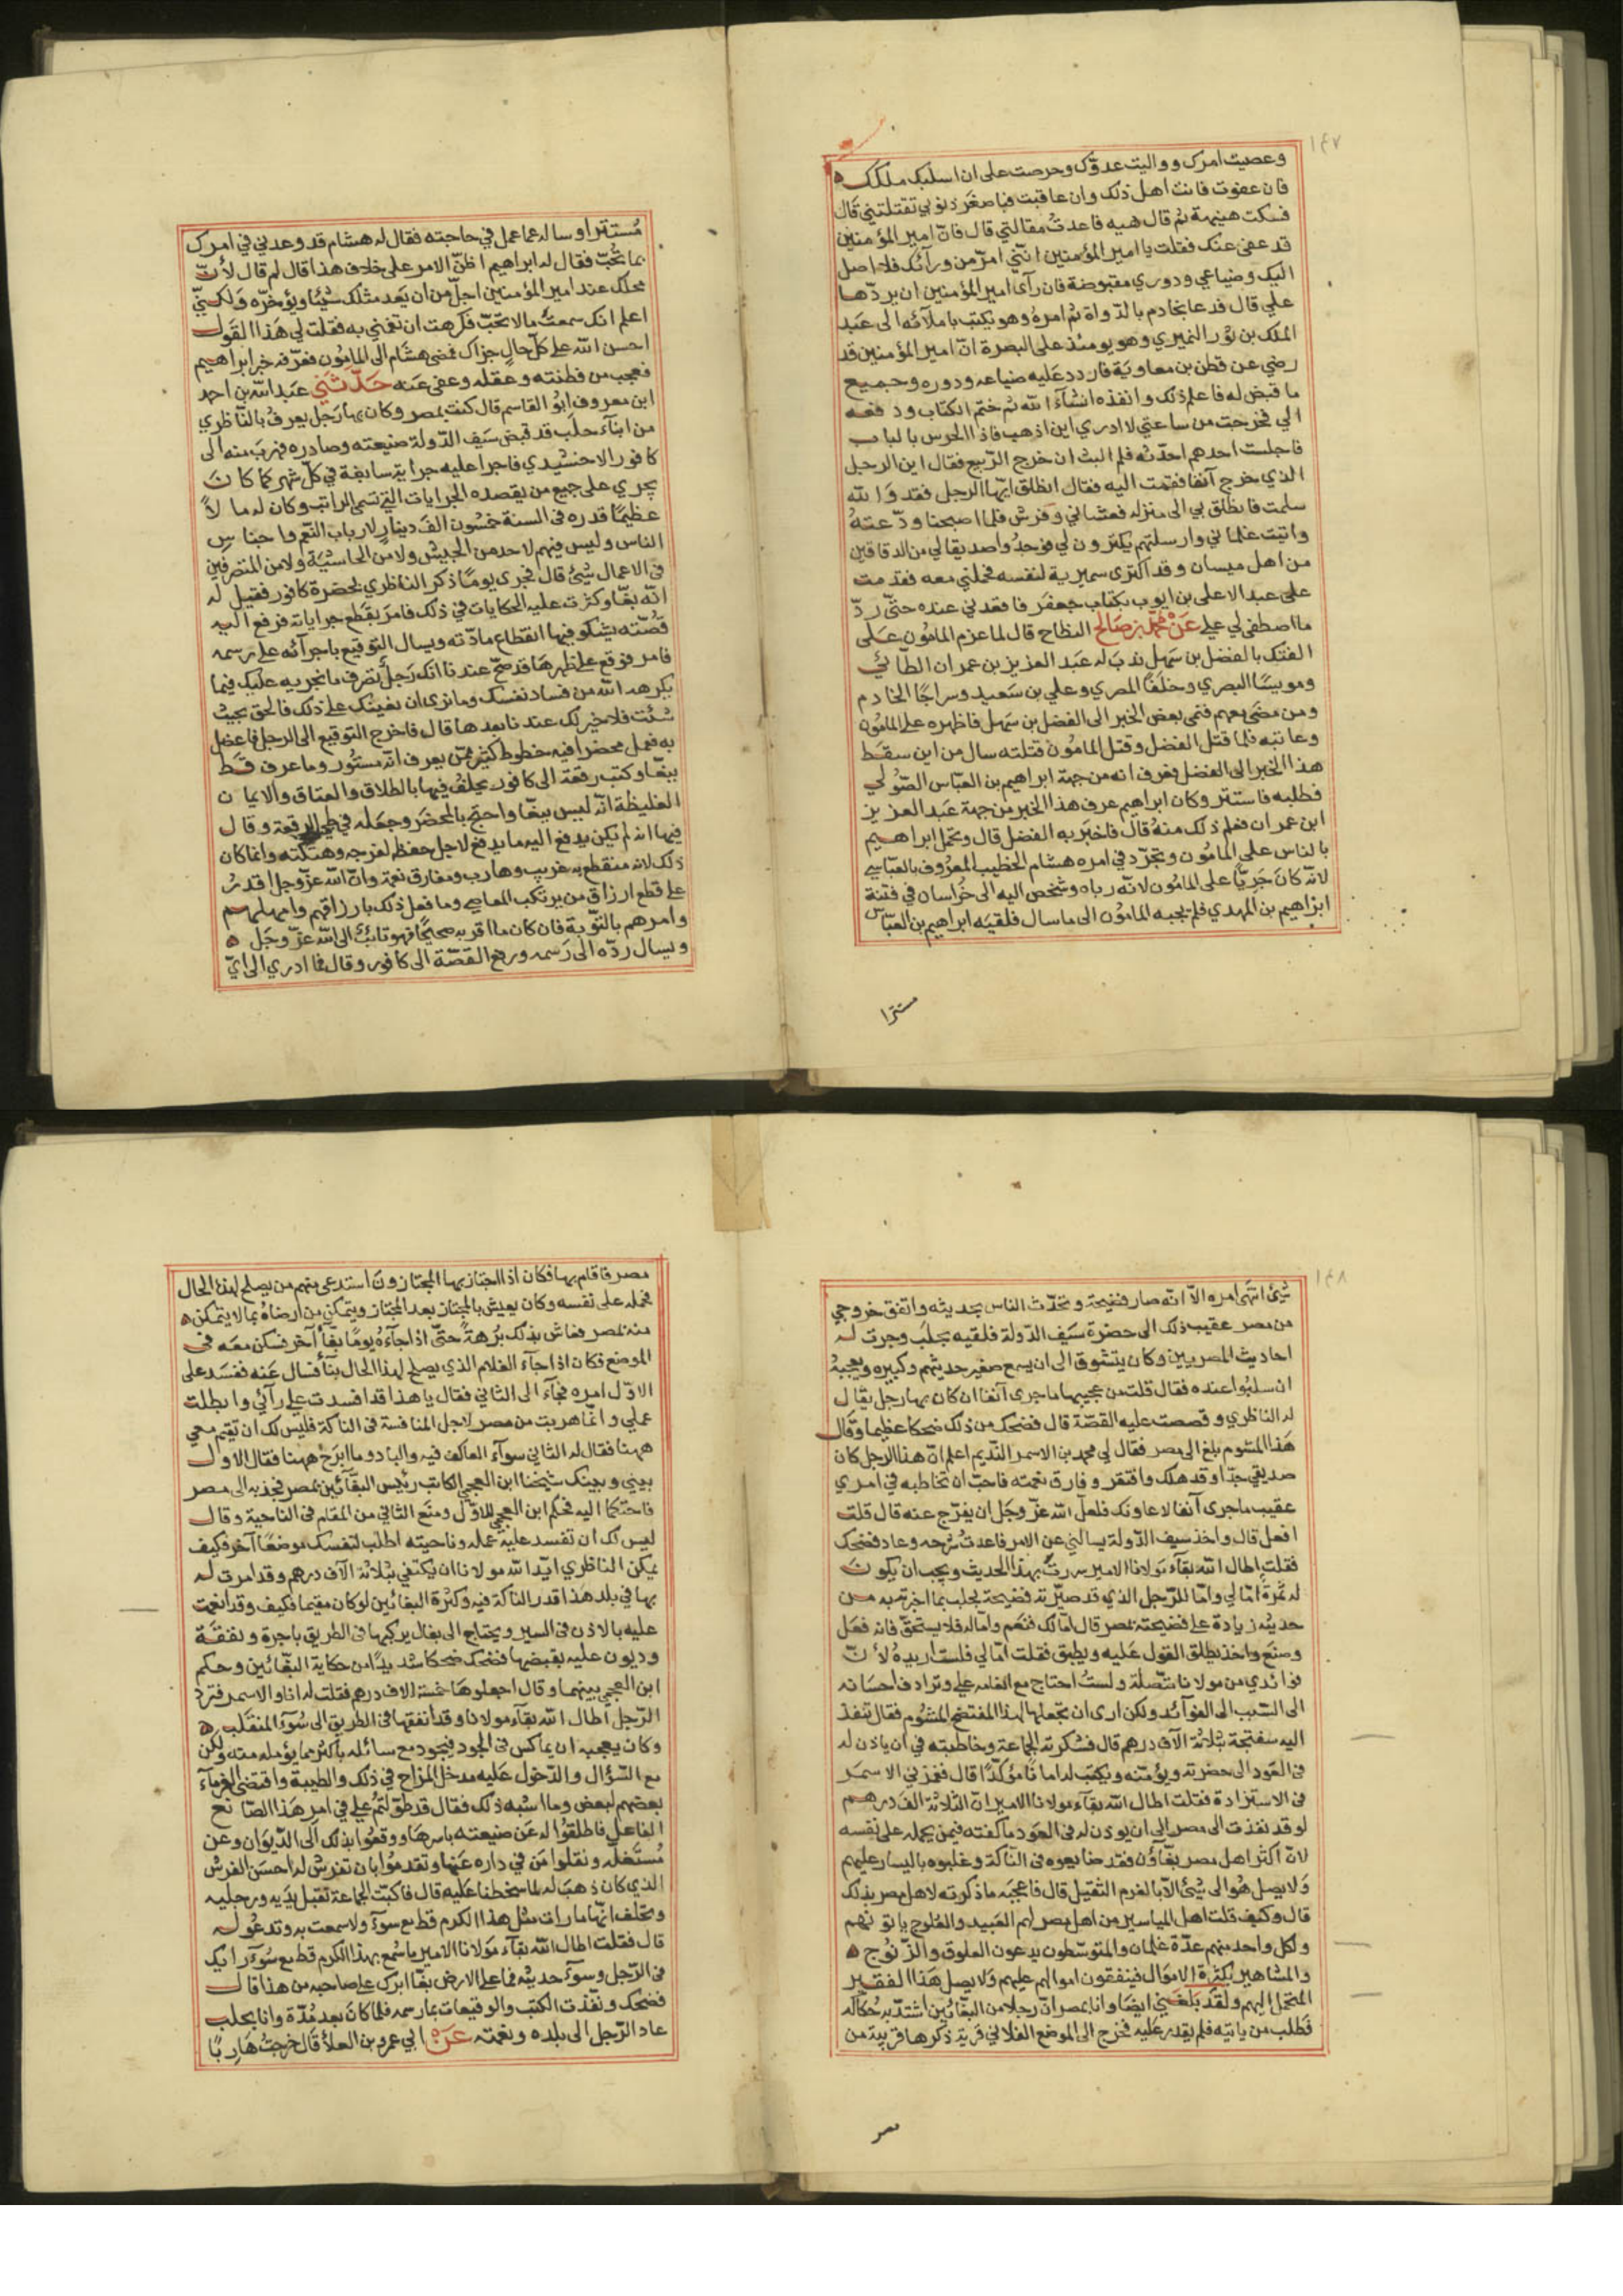 ١٤٧
وعصيت امرك وواليت عدوّك وحرصت على ان اسلبك ملكك
فان عفوت فانت اهل ذلك وان عاقبت فباصغر ذنوبي تقتلني قال
فسكت هينهة ثم قال هيه فاعدت مقالتي قال فانّ امير المؤمنين
قد عفى عنك فقلت يا امير المؤمنين انّني امرّ من ورآئك فلا اصل
اليك وضياعي ودوري مقبوضة فان رآى امير المؤمنين ان يردّها
علي قال فدعا بخادم بالدّواة ثم امره وهو يكتب باملآئه الى عبد
الملك بن ثور النميري وهو يومئذ على البصرة انّ امير المؤمنين قد
رضي عن قطن بن معاوية فاردد عليه ضياعه ودوره وجميع
ما قبض له فاعلم ذلك وانفذه انشآء الله ثم ختم الكتاب ودفعه
الي فخرجت من ساعتي لا ادري اين اذهب فاذا الحرس بالباب
فاجلست احدهم احدّثه فلم البث ان خرج الرّبيع فقال اين الرجل
الذي خرج آنفا فقمت اليه فقال انطلق ايّها الرجل فقد والله
سلمت فانطلق بي الى منزله فعشاني وفرش فلما اصبحنا ودّعته
واتيت غلماني وارسلتهم يكترون لي فوجدوا صديقا لي من الدقاقين
من اهل ميسان وقد اكترى سميرية لنفسه فحملني معه فقدمت
على عبد الاعلى بن ايوب بكتاب جعفر فاقعدني عنده حتّى ردّ
ما اصطفى لي علي عن محمّد بن صالح النطاح قال لما عزم المامون على
الفتك بالفضل بن سهل ندب له عبد العزيز بن عمران الطآئي
ومويسا البصري وخلفا المصري وعلي بن سعيد وسراجا الخادم
ومن مضى معهم فنمى بعض الخبر الى الفضل بن سهل فاظهره على المامون
وعاتبه فلما قتل الفضل وقتل المامون قتلته سال من اين سقط
هذا الخبر الى الفضل فعرف انه من جهة ابراهيم بن العبّاس الصّولي
فطلبه فاستتر وكان ابراهيم عرف هذا الخبر من جهة عبد العزيز
ابن عمران فعلم ذلك منه قال فاخبر به الفضل قال وتحمّل ابراهيم
بالناس على المامون وتجرّد في امره هشام الخطيب المعروف بالعباسي
لانّه كان جريّا على المامون لانّه رباه وشخص اليه الى خراسان في فتنة
ابراهيم بن المهدي فلم يجبه المامون الى ما سال فلقيه ابراهيم بن العبّاس
مستترا
مستترا وساله عما عمل في حاجته فقال له هشام قد وعدني في امرك
بما تحبّ فقال له ابراهيم اظنّ الامر على خلاف هذا قال لم قال لأنّ
محلك عند امير المؤمنين اجلّ من ان يعد مثلك شيئا ويؤخّره ولكنّي
اعلم انك سمعت ما لا تحبّ فكرهت ان تغمّني به فقلت لي هذا القول
احسن الله على كلّ حال جزاك فمضى هشام الى المامون فعرّفه خبر ابراهيم
فعجب من فطنته وعقله وعفى عنه حدّثني عبد الله بن احمد
ابن معروف ابو القاسم قال كنت بمصر وكان بها رجل يعرف بالناظري
من ابنآء حلب قد قبض سيف الدّولة ضيعته وصادره فهرب منه الى
كافور الاخشيدي فاجرا عليه جراية سابغة في كلّ شهر كما كان
يجري على جميع من يقصده الجرايات التي تسمى الراتب وكان له مالاً
عظيما قدره في السنة خمسون الف دينار لارباب النّعم واجناس
الناس وليس فيهم لاحد من الجيش ولا من الحاشية ولا من المتصرفين
في الاعمال شيئ قال فجرى يوما ذكر الناظري بحضرة كافور فقيل له
انّه بغّا وكثرت عليه الحكايات في ذلك فامر بقطع جراياته فرفع اليه
قصّته يشكو فيها انقطاع مادّته ويسال التوقيع باجرآئه على رسمه
فامر فوقع على ظهرها قد صحّ عندنا انك رجل تصرف ما نجريه عليك فيما
يكرهه الله من فساد نفسك وما نرى ان نعينك على ذلك فالحق بحيث
شئت فلا خير لك عندنا بعدها قال فاخرج التوقيع الى الرجل فاعضل
به فعمل محضرا فيه خطوط كثير ممّن يعرف انّه مستور وما عرف قط
ببغّا وكتب رقعة الى كافور يحلف فيها بالطلاق والعتاق والايمان
الغليظة انّه ليس ببغّا واحتج بالمحضر وجعله في طي الرقعة وقال
فيها انه لم يكن يدفع اليه ما يدفع لاجل حفظه لفرجه وهتكته وانما كان
ذلك لانه منقطع به غريب وهارب ومفارق نعمة وانّ الله عزّ وجل اقدر
على قطع ارزاق من يرتكب المعاصي وما فعل ذلك بارزاقهم وامهلهم
وامرهم بالتّوبة فان كان ما اقر به صحيحا فهو تائب الى الله عزّ وجل
ويسال ردّه الى رسمه ورفع القصّة الى كافور وقال فما ادري الى ايّ
١٤٨
شيئ انتهى امره الّا انّه صار فضيحة وتحدّث الناس بحديثه واتفق خروجي
من مصر عقيب ذلك الى حضرة سيف الدّولة فلقيه بحلب وجرت له
احاديث المصريين وكان يتشوق الى ان يسمع صغير حديثهم وكبيره ويعجبه
ان سلبوا عنده فقال قلت من عجيبها ما جرى آنفا ان كان بها رجل يقال
له الناظري وقصصت عليه القصّة قال فضحك من ذلك ضحكا عظيما وقال
هذا المشوم بلغ الى مصر فقال لي محمد بن الاسمر النّديم اعلم انّ هذا الرجل كان
صديقي جدّا وقد هلك وافتقر وفارق نعمته فاحبّ ان تخاطبه في امري
عقيب ما جرى آنفا لاعاونك فلعلّ الله عزّ وجل ان يفرّج عنه قال قلت
افعل قال واخذ سيف الدّولة يسالني عن الامر فاعدت شرحه وعاد فضحك
فقلت اطال الله بقآء مولانا الامير سررت بهذا الحديث ويجب ان يكون
له ثمرة امّا لي وامّا للرّجل الذي قد صيّرته فضيحة بحلب بما اخبرته به من
حديثه زيادة على فضيحته بمصر قال امّا لك فنعم وامّا له فلا يستحقّ فانه فعل
وصنع واخذ يطلق القول عليه ويطبق فقلت امّا لي فلست اريده لأنّ
فوائدي من مولانا متّصلة ولست احتاج مع انعامه علي وترادف احسانه
الى التسبب الى الفوآئد ولكن ارى ان تجعلها لهذا المفتضح المشوم فقال تنفذ
اليه سفتجة بثلاثة آلاف درهم قال فشكرته الجماعة وخاطبته في ان ياذن له
في العود الى حضرته ويؤمّنه ويكتب له امانا مؤكّدا قال فغمزني الاسمر
في الاستزادة فقلت اطال الله بقآء مولانا الامير انّ الثلاثة الف درهم
لو قد نفذت الى مصر الى ان يوذن له في العود ما كفته فيمن يحمله على نفسه
لانّ اكثر اهل مصر بغّآؤن فقد ضايعوه في النّاكة وغلبوه باليسار عليهم
ولا يصل هو الى شيئ الّا بالغرم الثقيل قال فاعجبه ما ذكرته لاهل مصر بذلك
قال وكيف قلت اهل المياسير من اهل مصر لهم العبيد والعلوج ياتونهم
ولكل واحد منهم عدّة غلمان والمتوسّطون يدعون العلوق والزّنوج
والمشاهير بكثرة الاموال فينفقون اموالهم عليهم ولا يصل هذا الفقير
المتجمّل اليهم ولقد بلغني ايضا وانا بمصر انّ رجلا من البغّائين اشتدّ به حكاكه
فطلب من ياتيه فلم يقدر عليه فخرج الى الموضع الفلاني قرية ذكرها قريبة من
مصر
مصر فاقام بها فكان اذا اجتاز بها المجتازون استدعى منهم من يصلح لهذه الحال
فحمله على نفسه وكان يعيش بالمجتاز بعد المجتاز ويتمكن من ارضاه بما لا يتمكن
منه بمصر فعاش بذلك برهة حتّى اذا جآءه يوما بغّآ آخر فسكن معه في
الموضع فكان اذا جآء الغلام الذي يصلح لهذا الحال بنآء فسال عنه ففسد على
الاوّل امره فجآء الى الثاني فقال يا هذا قد افسدت علي رآئي وابطلت
عملي وانما هربت من مصر لاجل المنافسة في الناكة فليس لك ان تقيم معي
ههنا فقال له الثاني سوآء العاكف فيه والباد وما ابرح ههنا فقال الاول
بيني وبينك شيخنا ابن العجمي الكاتب رئيس البغّآئين بمصر فجذبه الى مصر
فاحتكما اليه فحكم ابن العجمي للاوّل ومنع الثاني من المقام في الناحية وقال
ليس لك ان تفسد عليه عمله وناحيته اطلب لنفسك موضعا آخر فكيف
يمكن الناظري ايّد الله مولانا ان يكتفي بثلاثة آلاف درهم وقد امرت له
بها في بلد هذا قدر النّاكة فيه وكثرة البغائين لو كان مقيما فكيف وقد انعمت
عليه بالاذن في السير ويحتاج الى بغال يركبها في الطريق باجرة ونفقة
وديون عليه يقبضها فضحك ضحكا شديدا من حكاية البغّائين وحكم
ابن العجمي بينهما وقال اجعلوها خمسة الاف درهم فقلت له انا والاسمر فترد
الرّجل اطال الله بقآء مولانا وقد انفقها في الطريق الى سوء المنقلب
وكان يعجبه ان يماكس في الجود فيجود مع سائله باكثر مما يؤمله منه ولكن
مع السّؤال والدّخول عليه مدخل المزاح في ذلك والطيبة واقتضى الغرمآء
بعضهم لبعض وما اشبه ذلك فقال قد طوّلتم علي في امر هذا الصّانع
الفاعل فاطلقوا له عن ضيعته باسرها ووقعوا بذلك الى الدّيوان وعن
مستغلّه ونقلوا من في داره عنها وتقدموا بان تفرش له احسن الفرش
الذي كان ذهب له لما سخطنا عليه قال فاكبّت الجماعة تقبل يديه ورجليه
وتحلف انّها ما رات مثل هذا الكرم قط مع سوآء ولا سمعت به وتدعو له
قال فقلت اطال الله بقآء مولانا الامير ما سمع بهذا الكرم قط مع سوء رايك
في الرّجل وسوآء حديثه فما على الارض بغّا ابرك على صاحبه من هذا قال
فضحك ونفّذت الكتب والوقيعات بما رسمه فلما كان بعد مدّة وانا بحلب
عاد الرّجل الى بلده ونعمته عن ابي عمرو بن العلا قال خرجت هاربا